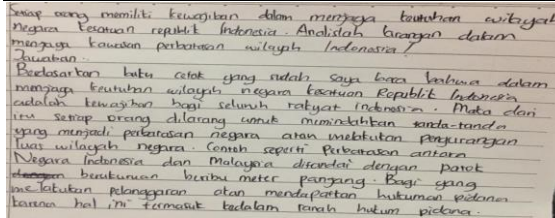 Setiap orang memiliki kewajiban dalam menjaga keutuhan wilayah
negara kesatuan republik Indonesia. Adakah larangan dalam
menjaga kawasan perbatasan wilayah Indonesia?
Jawaban.
Berdasarkan buku cetak yang sudah saya baca bahwa dalam
menjaga keutuhan wilayah negara kesatuan Republik Indonesia
adalah kewajiban bagi seluruh rakyat indonesia. Maka dari
itu setiap orang dilarang untuk memindahkan tanda-tanda
yang menjadi perbatasan negara atau melakukan pengurangan
luas wilayah negara. Contoh seperti Perbatasan antara
Negara Indonesia dan Malaysia ditandai dengan patok
berukuran beribu meter panjang. Bagi yang
melakukan pelanggaran akan mendapatkan hukuman pidana
karena hal ini termasuk kedalam ranah hukum pidana.